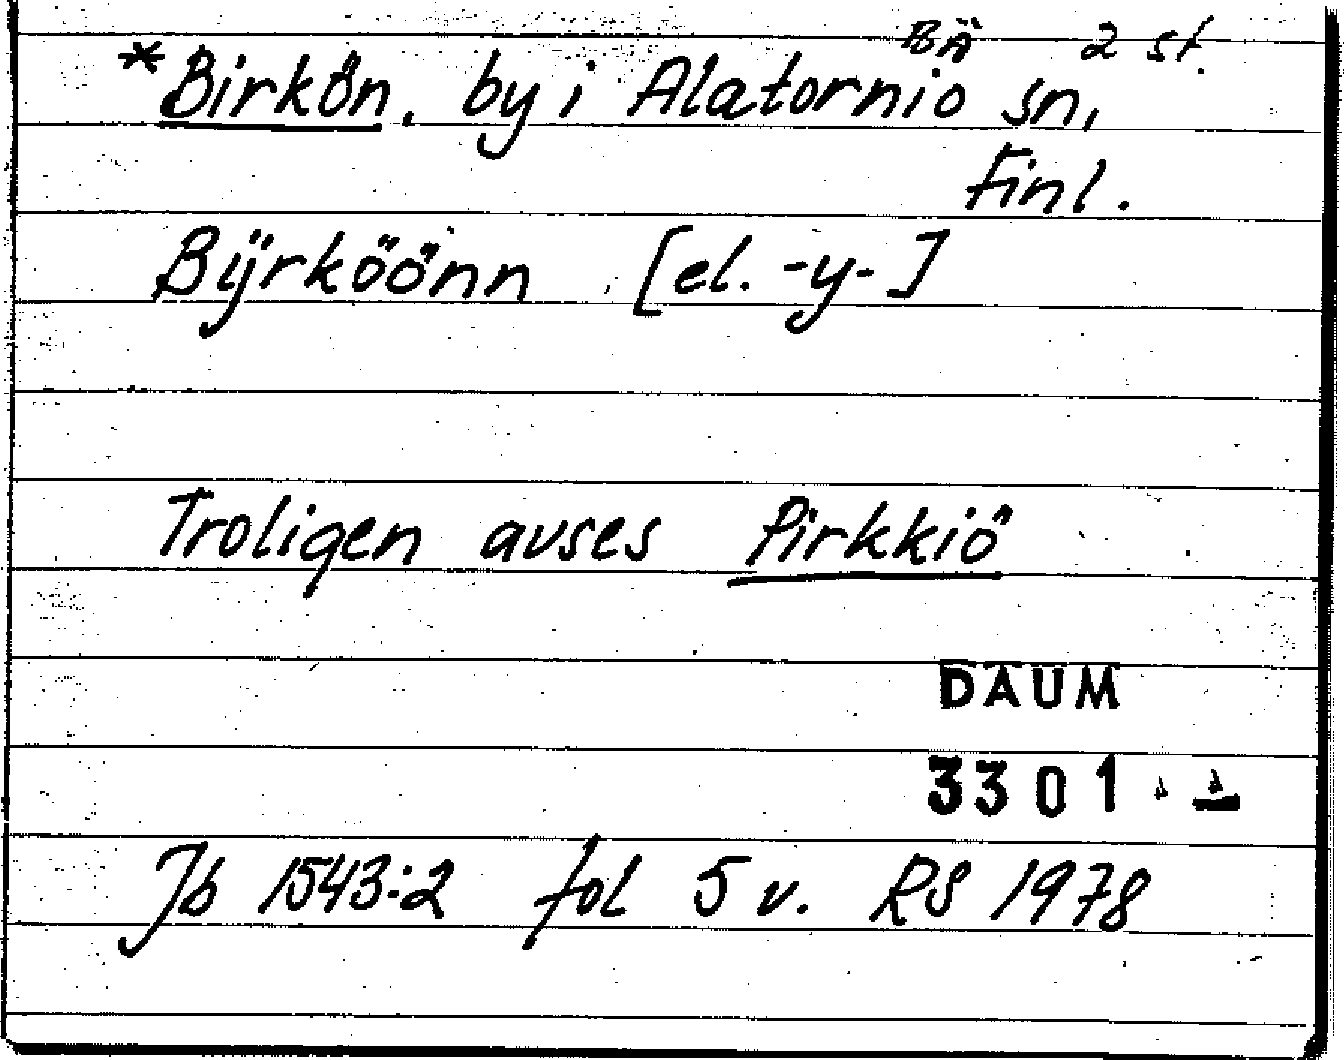 BÄ 2 st.
*Birkön, by i Alatornio sn,
Finl.
Bÿrköönn [el. -y-]
Troligen avses Pirkkiö
DAUM
3301
Jb 1543:2 fol 5 v. RS 1978